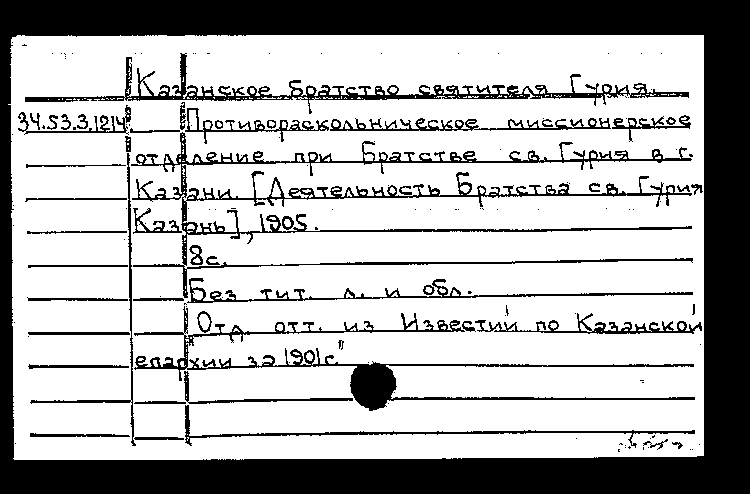 Казанское братство святителя Гурия.
34.53.3.1214 Противораскольническое миссионерское
отделение при Братстве св. Гурия в г.
Казани. [Деятельность Братства св. Гурия
Казань], 1905.
8с.
Без тит. л. и обл.
"Отд. отт. из Известий по Казанской
епархии за 1901г"